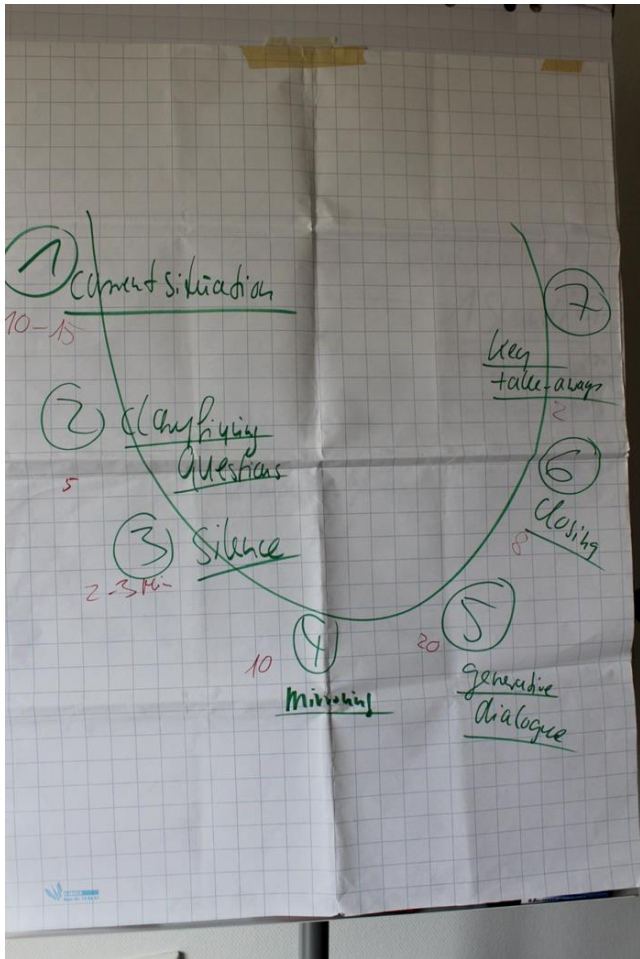 1
Current situation
10-15
2
Clarifiying
questions
5
3
Silence
2-3 Min
4
10
Mirroring
5
20
generative
dialogue
6
closing
8
7
key
take-aways
2